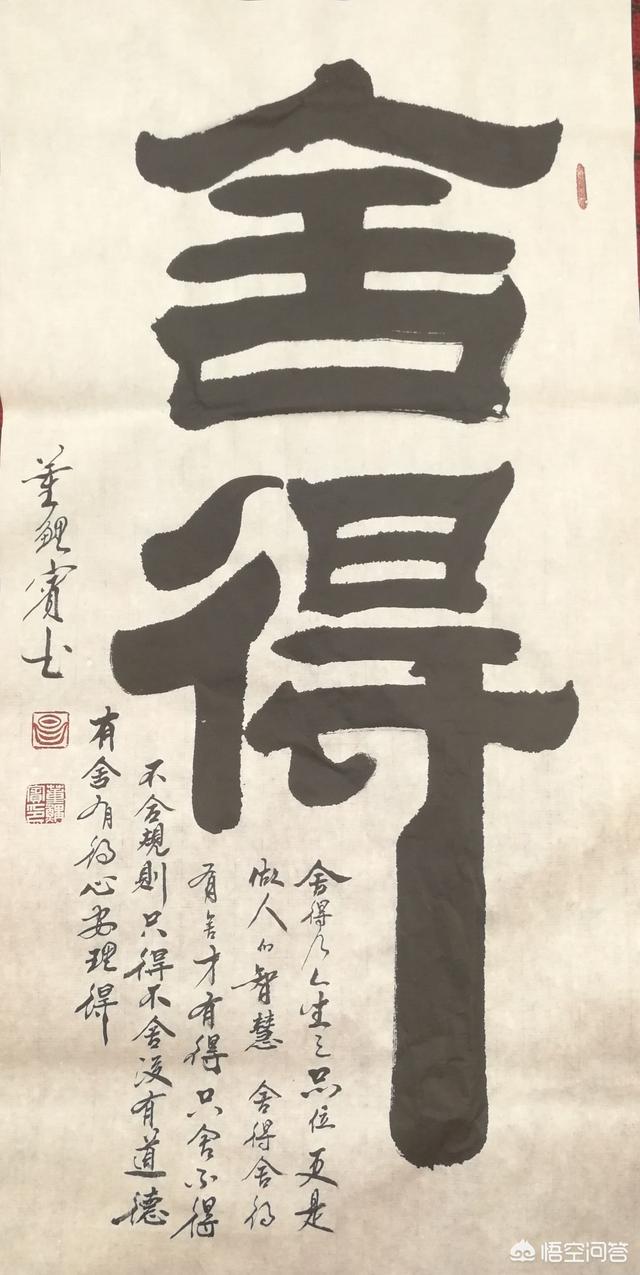 舍得
舍得乃人生之品位更是
做人的智慧 舍得舍得
有舍才有得 只舍不得
不合规则只得不舍没有道德
有舍有得心安理得
董鲤宾书
悟空问答